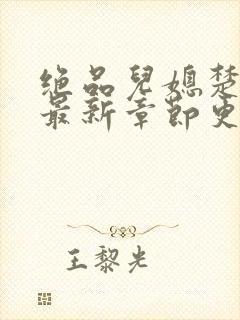 绝品儿媳楚
最新章节更
王黎光